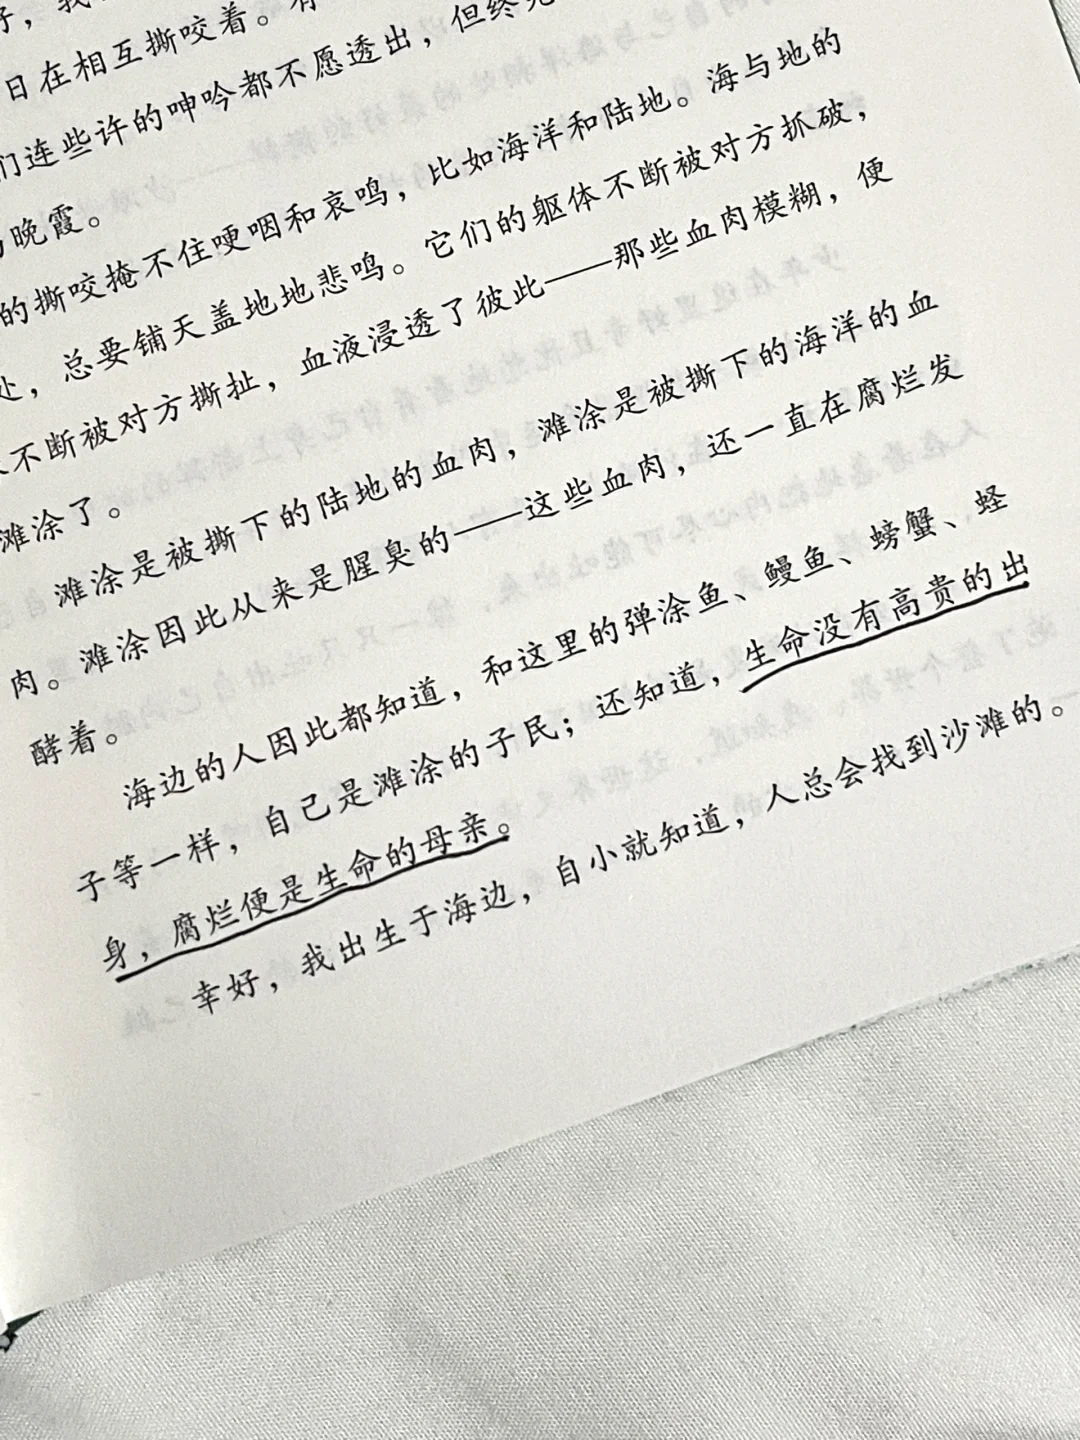 好，我
日在相互撕咬着。有
们连些许的呻吟都不愿透出，但终
晚霞。
的撕咬掩不住哽咽和哀鸣，比如海洋和陆地。海与地的
处，总要铺天盖地地悲鸣。它们的躯体不断被对方抓破，
不断被对方撕扯，血液浸透了彼此——那些血肉模糊，便
滩涂了。
滩涂是被撕下的陆地的血肉，滩涂是被撕下的海洋的血
肉。滩涂因此从来是腥臭的——这些血肉，还一直在腐烂发
酵着。
海边的人因此都知道，和这里的弹涂鱼、鳗鱼、螃蟹、蛏
子等一样，自己是滩涂的子民；还知道，生命没有高贵的出
身，腐烂便是生命的母亲。
幸好，我出生于海边，自小就知道，人总会找到沙滩的。